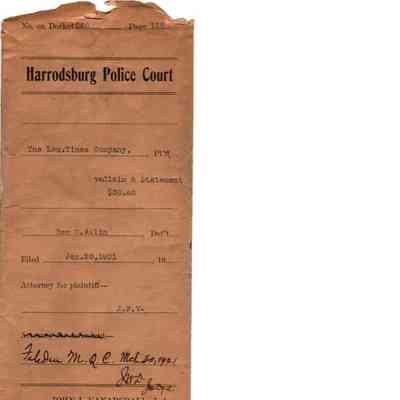 No. on Docket 240 Page 118
Harrodsburg Police Court
The Lex.Times Company, Pl'ff
vsClaim & Statement
$20.40
Ben C.Allin Def't.
Filed Jan.20,1921 19
Attorney for plaintiff—
J.P.V.
Filed in M. Q. C. Mch 20, 1921